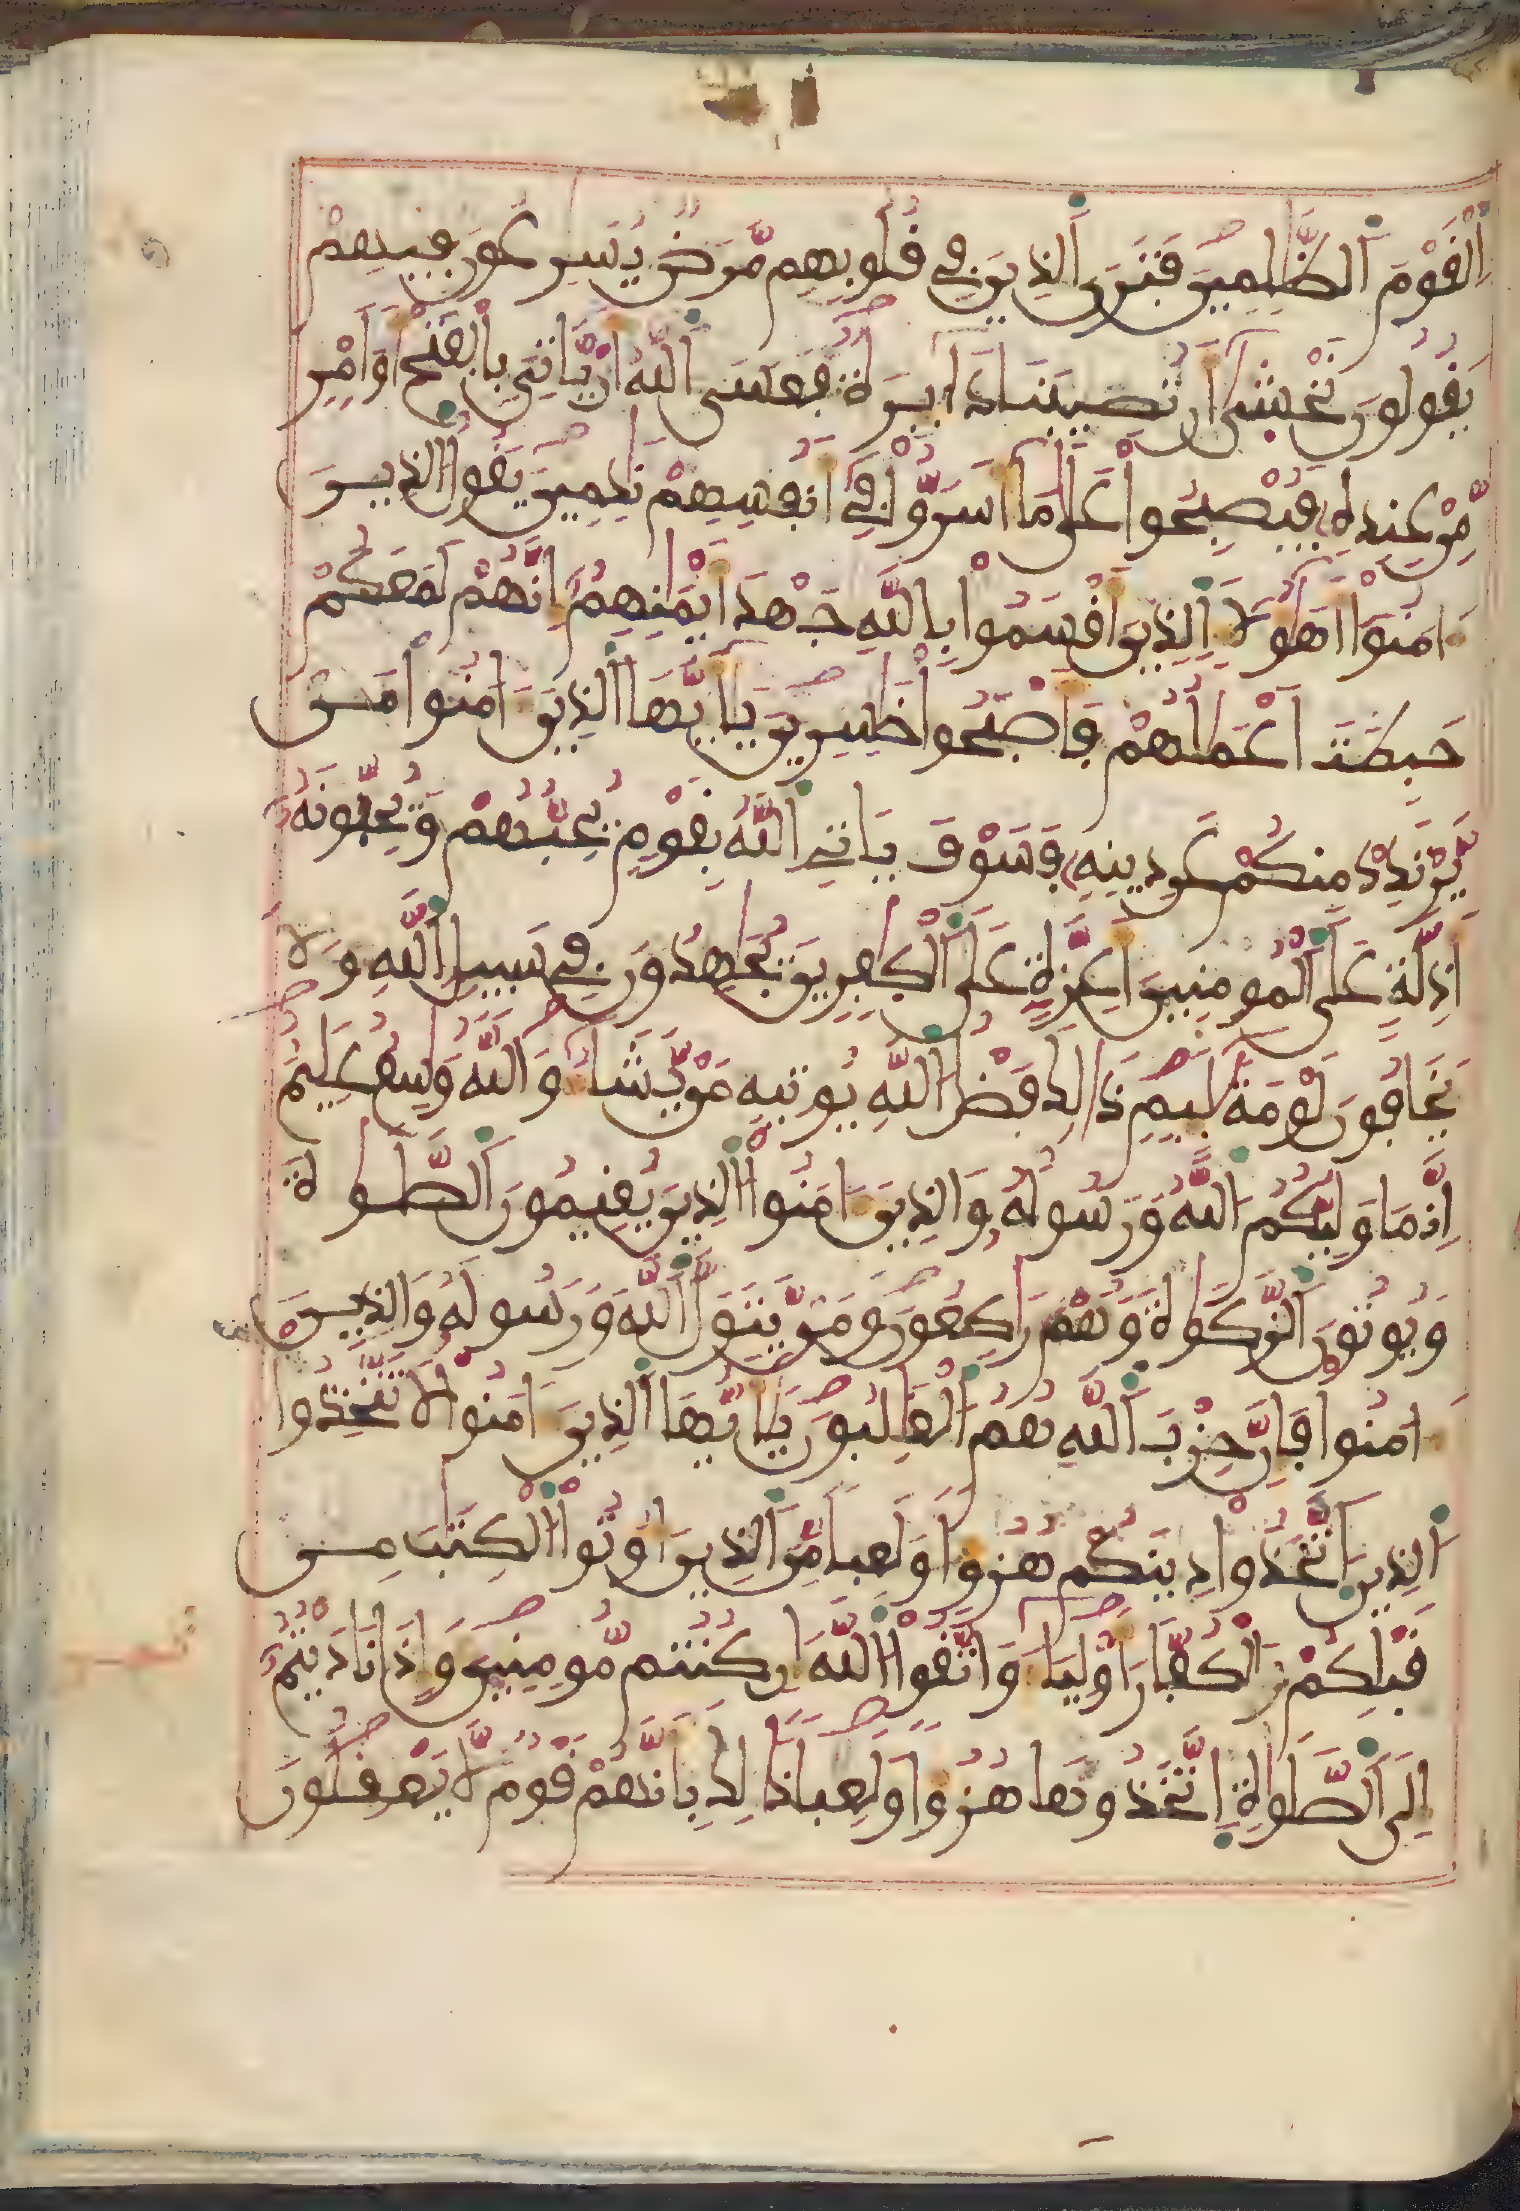 اَ۬لْقَوْمَ اَ۬لظَّٰلِمِينَ فَتَرَي اَ۬لذِينَ فِے قُلُوبِهِم مَّرَضٞ يُسَٰرِعُونَ فِيهِمْ
يَقُولُونَ نَخْش۪يٰٓ أَن تُصِيبَنَا دَآئِرَةٞ فَعَسَي اَ۬للَّهُ أَنْ يَّاتِيَ بِالْفَتْحِ أَوَ اَمْرٖ
مِّنْ عِندِهِۦ فَيُصْبِحُواْ عَلَيٰ مَآ أَسَرُّواْ فِےٓ أَنفُسِهِمْ نَٰدِمِينَ يَقُولُ اُ۬لذِينَ
ءَامَنُوٓاْ أَهَٰٓؤُلَآءِ اِ۬لذِينَ أَقْسَمُواْ بِاللَّهِ جَهْدَ أَيْمَٰنِهِمُۥٓ إِنَّهُمْ لَمَعَكُمْ
حَبِطَتَ اَعْمَٰلُهُمْ فَأَصْبَحُواْ خَٰسِرِينَ يَٰٓأَيُّهَا اَ۬لذِينَ ءَامَنُواْ مَن
يَّرْتَدِدْ مِنكُمْ عَن دِينِهِۦ فَسَوْفَ يَاتِے اِ۬للَّهُ بِقَوْمٖ يُحِبُّهُمْ وَيُحِبُّونَهُۥٓ
أَذِلَّةٍ عَلَي اَ۬لْمُومِنِينَ أَعِزَّةٍ عَلَي اَ۬لْكٰ۪فِرِينَ يُجَٰهِدُونَ فِے سَبِيلِ اِ۬للَّهِ وَلَا
يَخَافُونَ لَوْمَةَ لَآئِمٖ ذَٰلِكَ فَضْلُ اُ۬للَّهِ يُوتِيهِ مَنْ يَّشَآءُ وَاللَّهُ وَٰسِعٌ عَلِيمٌ
إِنَّمَا وَلِيُّكُمُ اُ۬للَّهُ وَرَسُولُهُۥ وَالذِينَ ءَامَنُواْ اُ۬لذِينَ يُقِيمُونَ اَ۬لصَّلَوٰةَ
وَيُوتُونَ اَ۬لزَّكَوٰةَ وَهُمْ رَٰكِعُونَ وَمَنْ يَّتَوَلَّ اَ۬للَّهَ وَرَسُولَهُۥ وَالذِينَ
ءَامَنُواْ فَإِنَّ حِزْبَ اَ۬للَّهِ هُمُ اُ۬لْغَٰلِبُونَ يَٰٓأَيُّهَا اَ۬لذِينَ ءَامَنُواْ لَا تَتَّخِذُواْ
اُ۬لذِينَ اَ۪تَّخَذُواْ دِينَكُمْ هُزُؤاٗ وَلَعِباٗ مِّنَ اَ۬لذِينَ أُوتُواْ اُ۬لْكِتَٰبَ مِن
قَبْلِكُمْ وَالْكُفَّارَ أَوْلِيَآءَ وَاتَّقُواْ اُ۬للَّهَ إِن كُنتُم مُّومِنِينَ وَإِذَا نَادَيْتُمُۥٓ
إِلَي اَ۬لصَّلَوٰةِ اِ۪تَّخَذُوهَا هُزُؤاٗ وَلَعِباٗ ذَٰلِكَ بِأَنَّهُمْ قَوْمٞ لَّا يَعْقِلُونَ